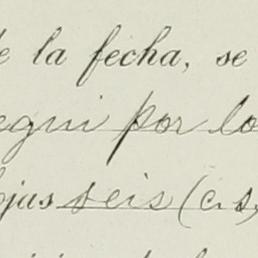 de la fecha, se
egui por lo
ojas seis (c.s.